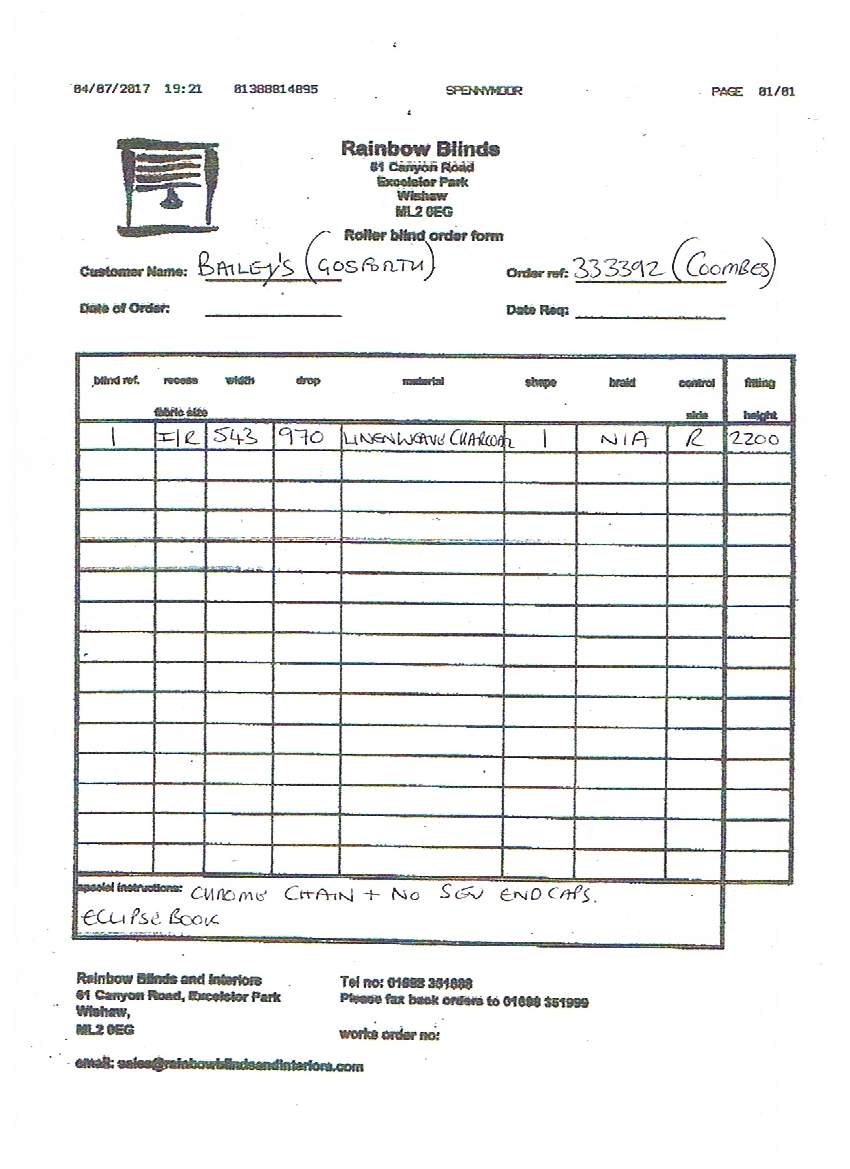 04/07/2017 19:21 01388814895 SPENNYMOOR PAGE 01/01
Rainbow Blinds
61 Canyon Road
Excelsior Park
Wishaw
ML2 0EG
Roller blind order form
Customer Name: BAILEY'S (GOSFORTH) Order ref: 333392 (COOMBES)
Date of Order: Date Req:
blind ref. recess width drop material shape braid control fitting
fabric size side height
1 I/R 543 970 LINENWEAVE CHARCOAL 1 N/A R 2200
special instructions: CHROME CHAIN + NO SEW ENDCAPS.
ECLIPSE BOOK
Rainbow Blinds and Interiors Tel no:
61 Canyon Road, Excelsior Park Please fax back orders to 01698 351999
Wishaw,
ML2 0EG works order no:
email: sales@rainbowblindsandinteriors.com